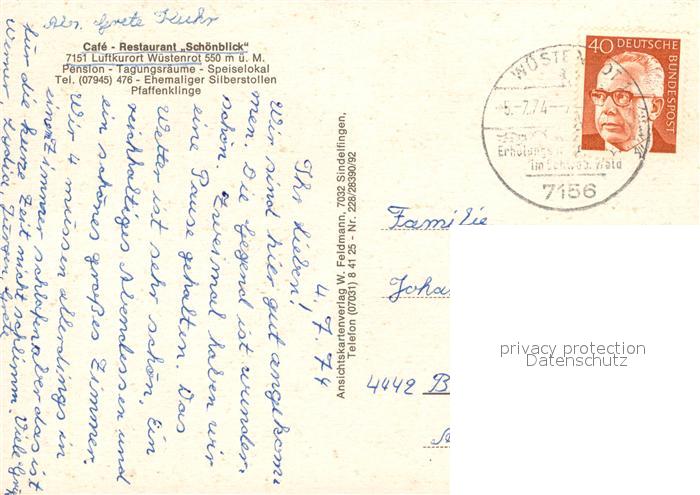 Abs. Grete Kuhr
Café - Restaurant „Schönblick"
7151 Luftkurort Wüstenrot 550 m ü. M.
Pension - Tagungsräume - Speiselokal
Tel. (07945) 476 - Ehemaliger Silberstollen
Pfaffenklinge
4. 7. 74
Ihr Lieben!
Wir sind hier gut angekom
men. Die Gegend ist wunder-
schön. Zweimal haben wir
eine Pause gehalten. Das
Wetter ist sehr schön. Ein
reichhaltiges Abendessen und
ein schönes großes Zimmer.
Wir 4 müssen allerdings in
einem Zimmer schlafen aber das ist
für die kurze Zeit nicht schlimm. Viele Grüß
Werner, Jürgen, Grete
Ansichtskartenverlag W. Feldmann, 7032 Sindelfingen,
Telefon (07031) 8 41 25 - Nr. 228/28390/92
40 DEUTSCHE
BUNDESPOST
WÜSTENROT
5.-7.74
Erholungs
im Schwäb. Wald
7156
Familie
Joha
4442 B
privacy protection
Datenschutz